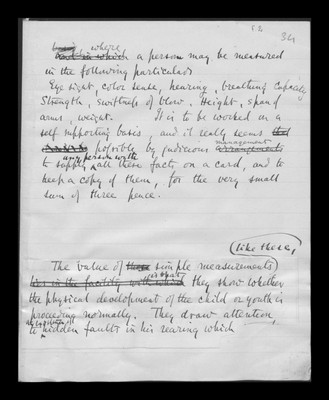 34
where
a person may be measured
in the following particulars
Eye sight, color sense, hearing, breathing capacity
Strength, swiftness of blow. Height, span of
arms, weight. It is to be worked on a
self supporting basis, and it really seems that
possible by judicious management arrangements
to supply any person with all these facts on a card, and to
keep a copy of them, for the very small
sum of three pence.
(like these,
The value of these simple measurements)
lies in the facility with which they show whether
the physical development of the child or youth is
proceeding normally. They draw attention,
to hidden faults in his rearing which